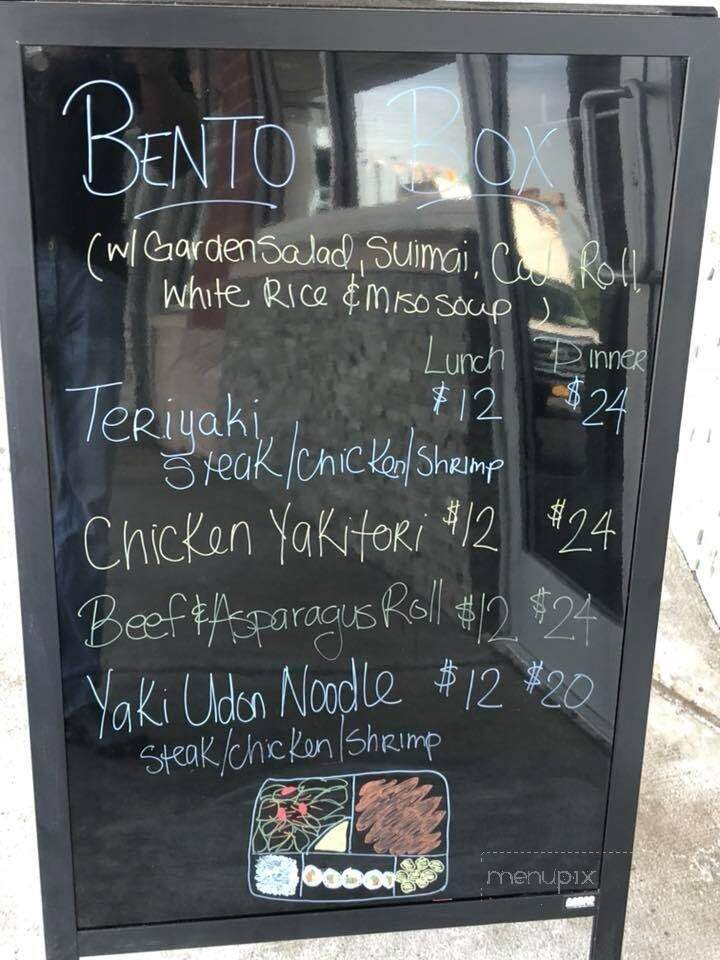 BENTO BOX
(w/ Garden Salad, Suimai, Cali Roll,
White Rice & Miso soup )
Lunch Dinner
Teriyaki $12 $24
Steak/Chicken/Shrimp
Chicken Yakitori $12 $24
Beef & Asparagus Roll $12 $24
Yaki Udon Noodle $12 $20
Steak/Chicken/Shrimp
menupix